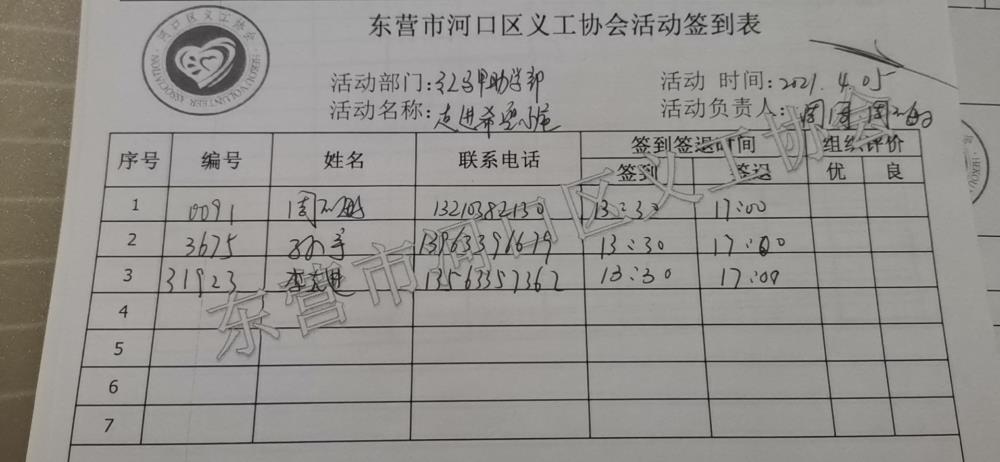 东营市河口区义工协会活动签到表
河口区义工协会
HEKOU VOLUNTEER ASSOCIATION
活动部门: 助学部 活动 时间: 2021.4.05
活动名称: 走进希望小屋 活动负责人:
序号 编号 姓名 联系电话 签到签退时间 组织评价
签到 签退 优 良
1 0091 13210382130 13:30 17:00
2 3675 13963396679 13:30 17:00
3 31923 13563357362 13:30 17:00
4
5
6
7
东营市河口区义工协会